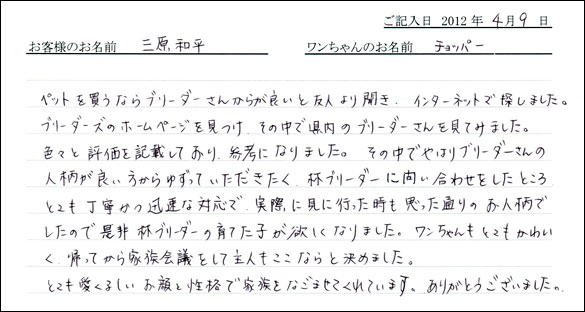 ご記入日 2012 年 4月 9 日
お客様のお名前 三原和平 ワンちゃんのお名前 チョッパー
ペットを買うならブリーダーさんからが良いと友人より聞き、インターネットで探しました。
ブリーダーズのホームページを見つけ、その中で県内のブリーダーさんを見てみました。
色々と評価を記載しており、参考になりました。その中でやはりブリーダーさんの
人柄が良い方からゆずっていただきたく、林ブリーダーに問い合わせをしたところ
とても丁寧かつ迅速な対応で、実際に見に行った時も思った通りのお人柄で
したので是非 林ブリーダーの育てた子が欲しくなりました。ワンちゃんもとてもかわい
く、帰ってから家族会議をして主人もここならと決めました。
とても愛くるしいお顔と性格で家族をなごませてくれています。ありがとうございました。